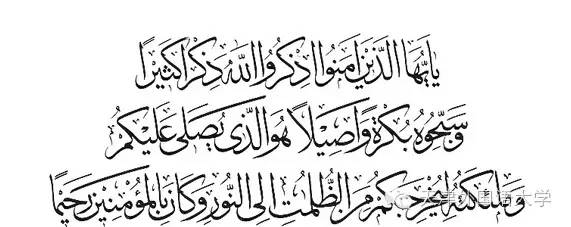 يَا أَيُّهَا الَّذِينَ آمَنُوا اذْكُرُوا اللَّهَ ذِكْرًا كَثِيرًا
وَسَبِّحُوهُ بُكْرَةً وَأَصِيلًا هُوَ الَّذِي يُصَلِّي عَلَيْكُمْ
وَمَلَائِكَتُهُ لِيُخْرِجَكُم مِّنَ الظُّلُمَاتِ إِلَى النُّورِ وَكَانَ بِالْمُؤْمِنِينَ رَحِيمًا
天津外国语大学